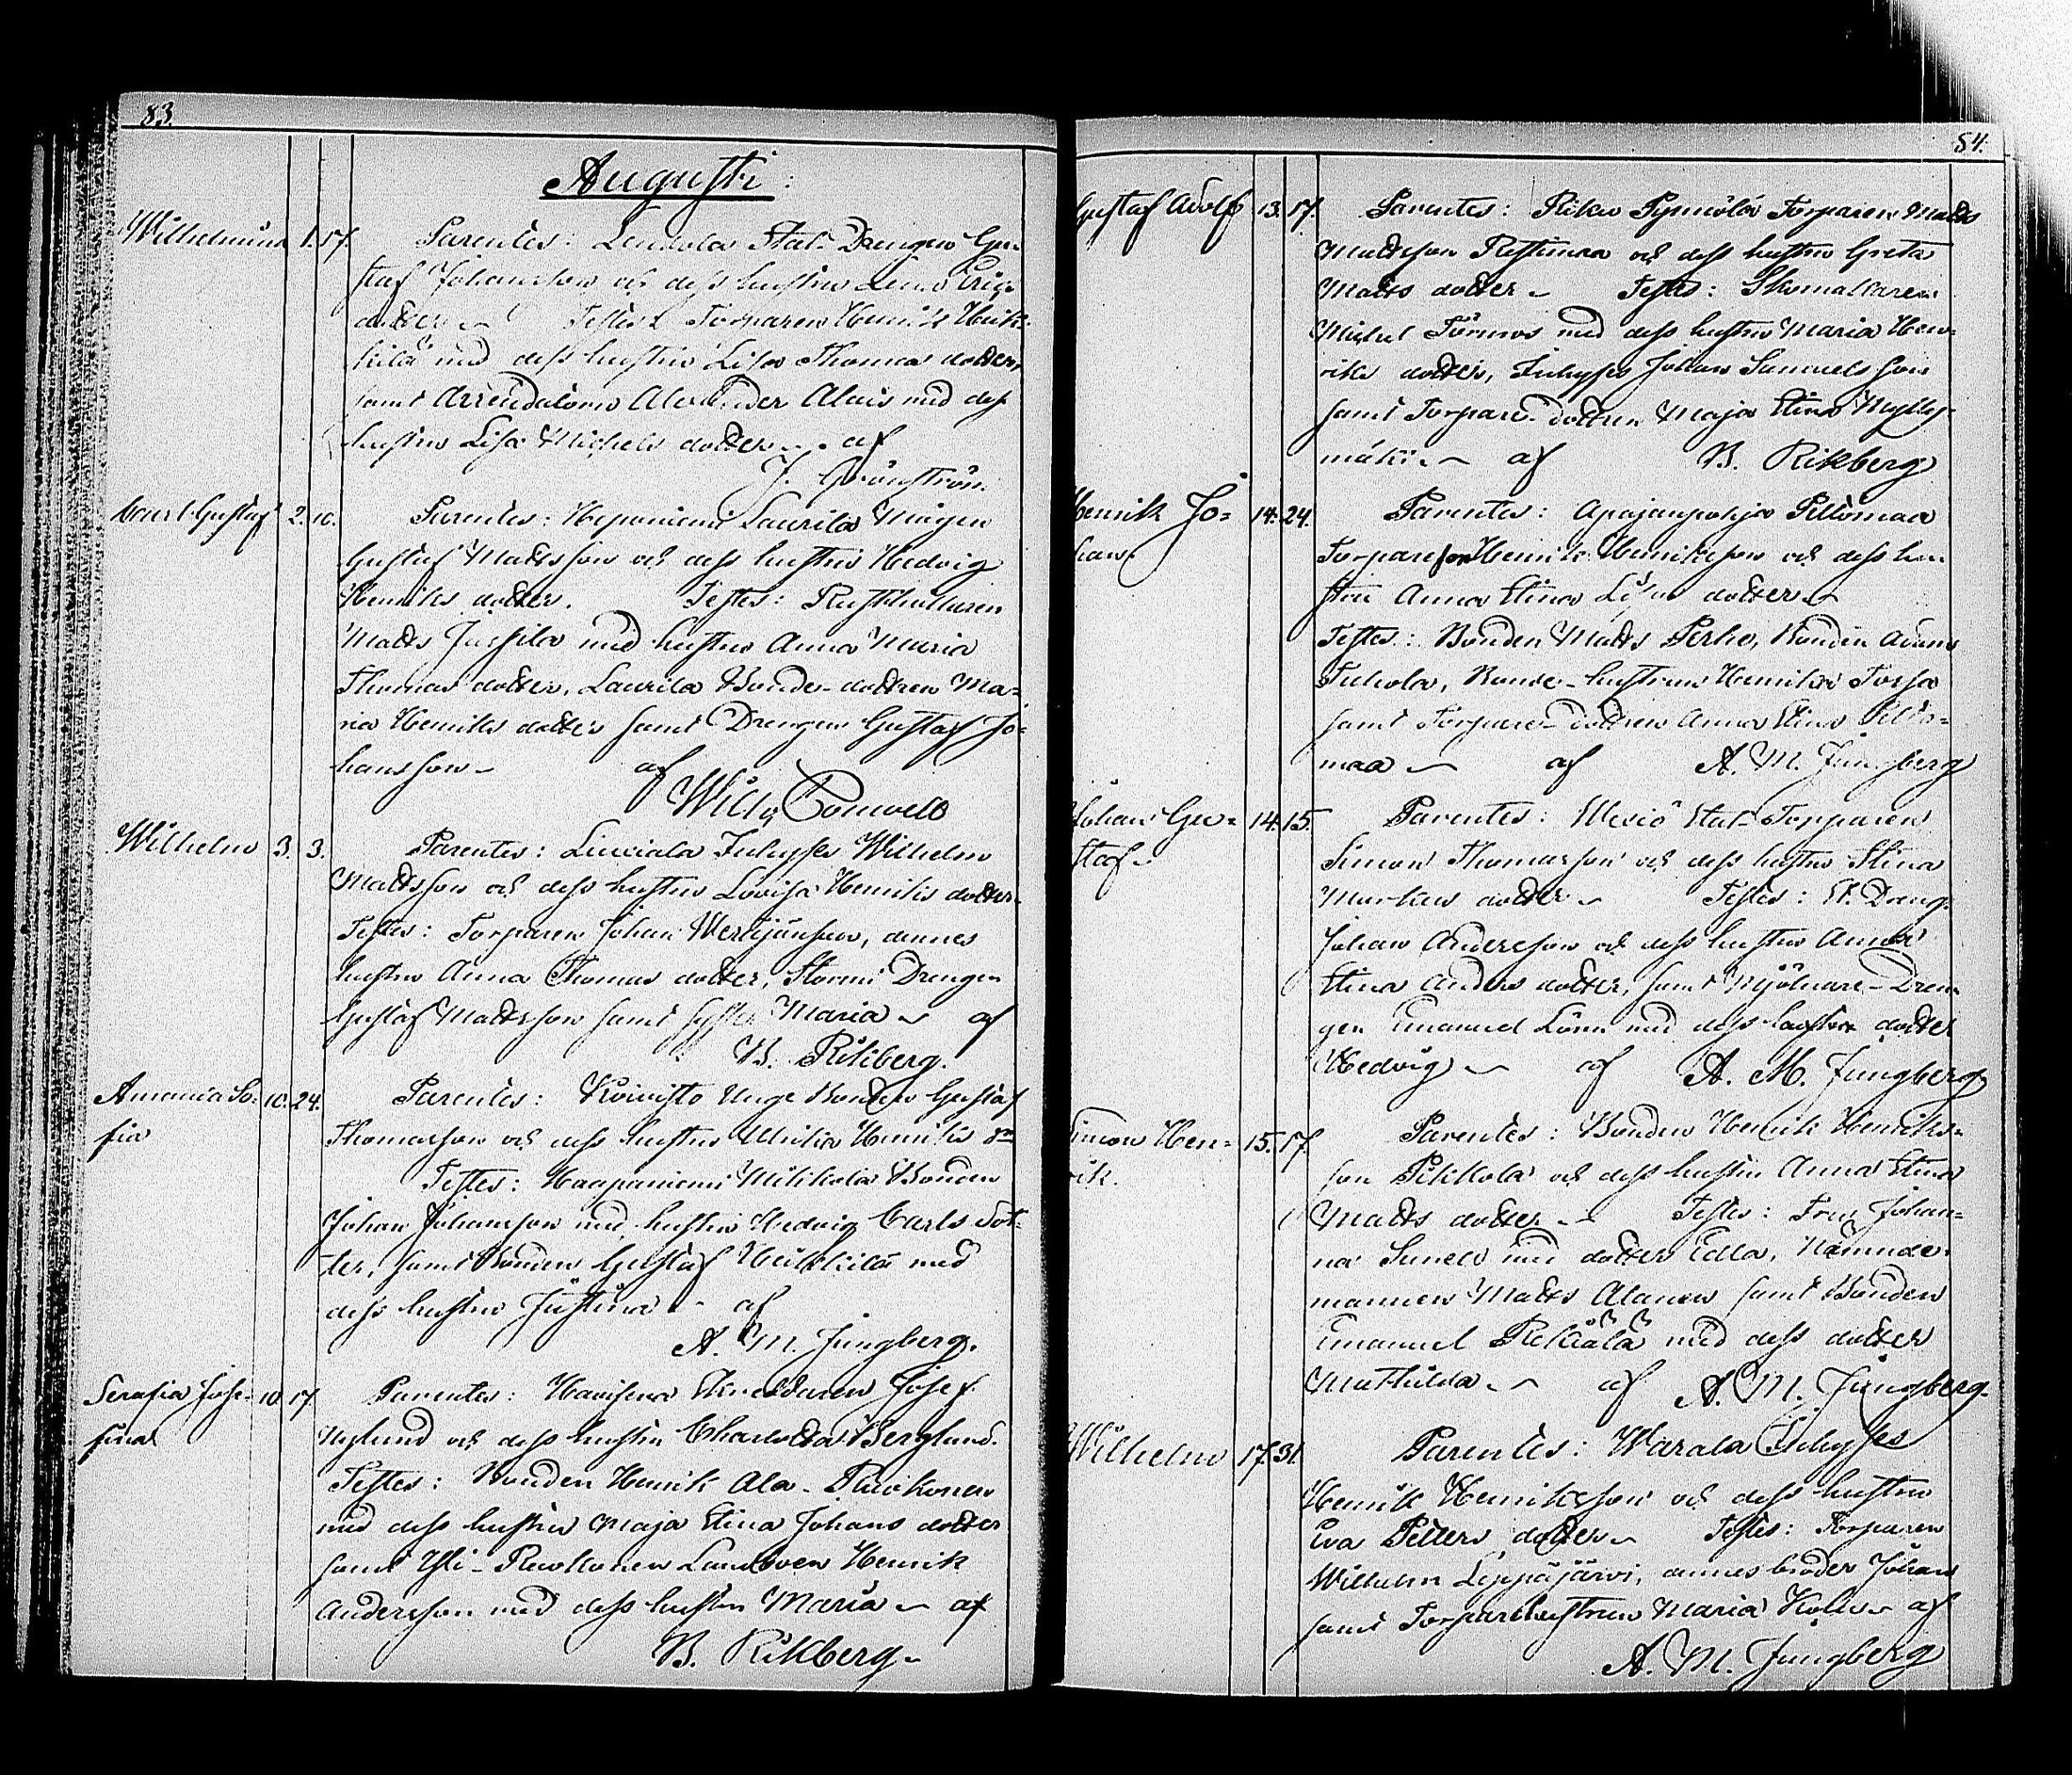 83.
Augusti:
Wilhelmina 1. 17. Parentes: Lendola Stat-Drengen Gu-
staf Johansson och dess hustru Lena Erics
dotter Testes: Torparen Henrik Heik-
kilä med dess hustru Lisa Thomas dotter,
samt Arrendatorn Alexander Alais med dess
hustru Lisa Michels dotter af
J. Grönström.
Carl Gustaf 2. 10. Parentes: Haponiemi Laurila Mågen
Gustaf Mattsson och dess hustru Hedvig
Henriks dotter. Testes: Rusthållaren
Matts Jussila med hustru Anna Maria
Thomas dotter, Laurila Bonde-dottren Ma-
ria Henriks dotter samt Drengen Gustaf Jo-
hansson af
Wilh.
Wilhelm 3. 3. Parentes: Linciala Inhyses Wilhelm
Mattsson och dess hustru Lovisa Henriks dotter.
Testes: Torparen Johan, dennes
hustru Anna Thomas dotter, Stormi Drengen
Gustaf Mattsson samt syster Maria af
B. Rikberg.
Amanda So- 10. 24. Parentes: Koivisto Unge Bonden Gustaf
fia Thomasson och dess hustru Ulrika Henriks dr
Testes: Haapaniemi Mikkola Bonden
Johan Johansson med hustru Hedvig Carls dot-
ter, samt Bonden Gustaf Heikkilä med
dess hustru Justina af
A. M. Jungberg.
Serafia Jose- 10. 17. Parentes: Havisena Skreddaren Josef
fina Nylund och dess hustru Charlotta Berglund.
Testes: Bonden Henrik Ala-Ruokonen
med dess hustru Maja Stina Johans dotter
samt Yli-Ruokonen Landboen Henrik
Andersson med dess hustru Maria af
B. Rikberg
84.
Gustaf Adolf 13. 17. Parentes: Torparen Matts
Mattsson Ristimaa och dess hustru Greta
Matts dotter Testes: Skomakaren
Michel Törnroos med dess hustru Maria Hen-
riks dotter, Inhyses Johan Samuelsson
samt Torpare-dottren Maja Stina Mylly-
mäki af B. Rikberg
Henrik Jo- 14. 24. Parentes: Apajanpohja Peltomaa
han Torparesson Henrik Henriksson och dess hu-
stru Anna Stina dotter
Testes: Bonden Matts Perho, Bonden Adam
Tuhola, Bonde-hustrun Henrika Torssa
samt Torpare-dottren Anna Stina Pelto-
maa af A. M. Jungberg
Johan Gu- 14. 15. Parentes: Wesiö Stat-Torparen
staf Simon Thomasson och dess hustru Stina
Markus dotter Testes: St. Dreng.
Johan Andersson och dess hustru Anna
Stina Anders dotter, samt Mjölnare-Dren-
gen Emanuel Lönn med dess dotter
Hedvig af A. M. Jungberg
Simon Hen- 15. 17. Parentes: Bonden Henrik Henriks-
rik. son Pikkola och dess hustru Anna Stina
Matts dotter Testes: Fru Johan-
na Sunell med dotter Edla, Nämnde-
mannen Matts Alanen samt Bonden
Emanuel med dess dotter
Mathilda af A. M. Jungberg
Wilhelm 17. 31. Parentes: Warala Inhyses
Henrik Henriksson och dess hustru
Eva Petters dotter Testes: Torparen
Wilhelm Leppäjärvi, dennes broder Johan
samt Torparehustrun Maria af
A. M. Jungberg